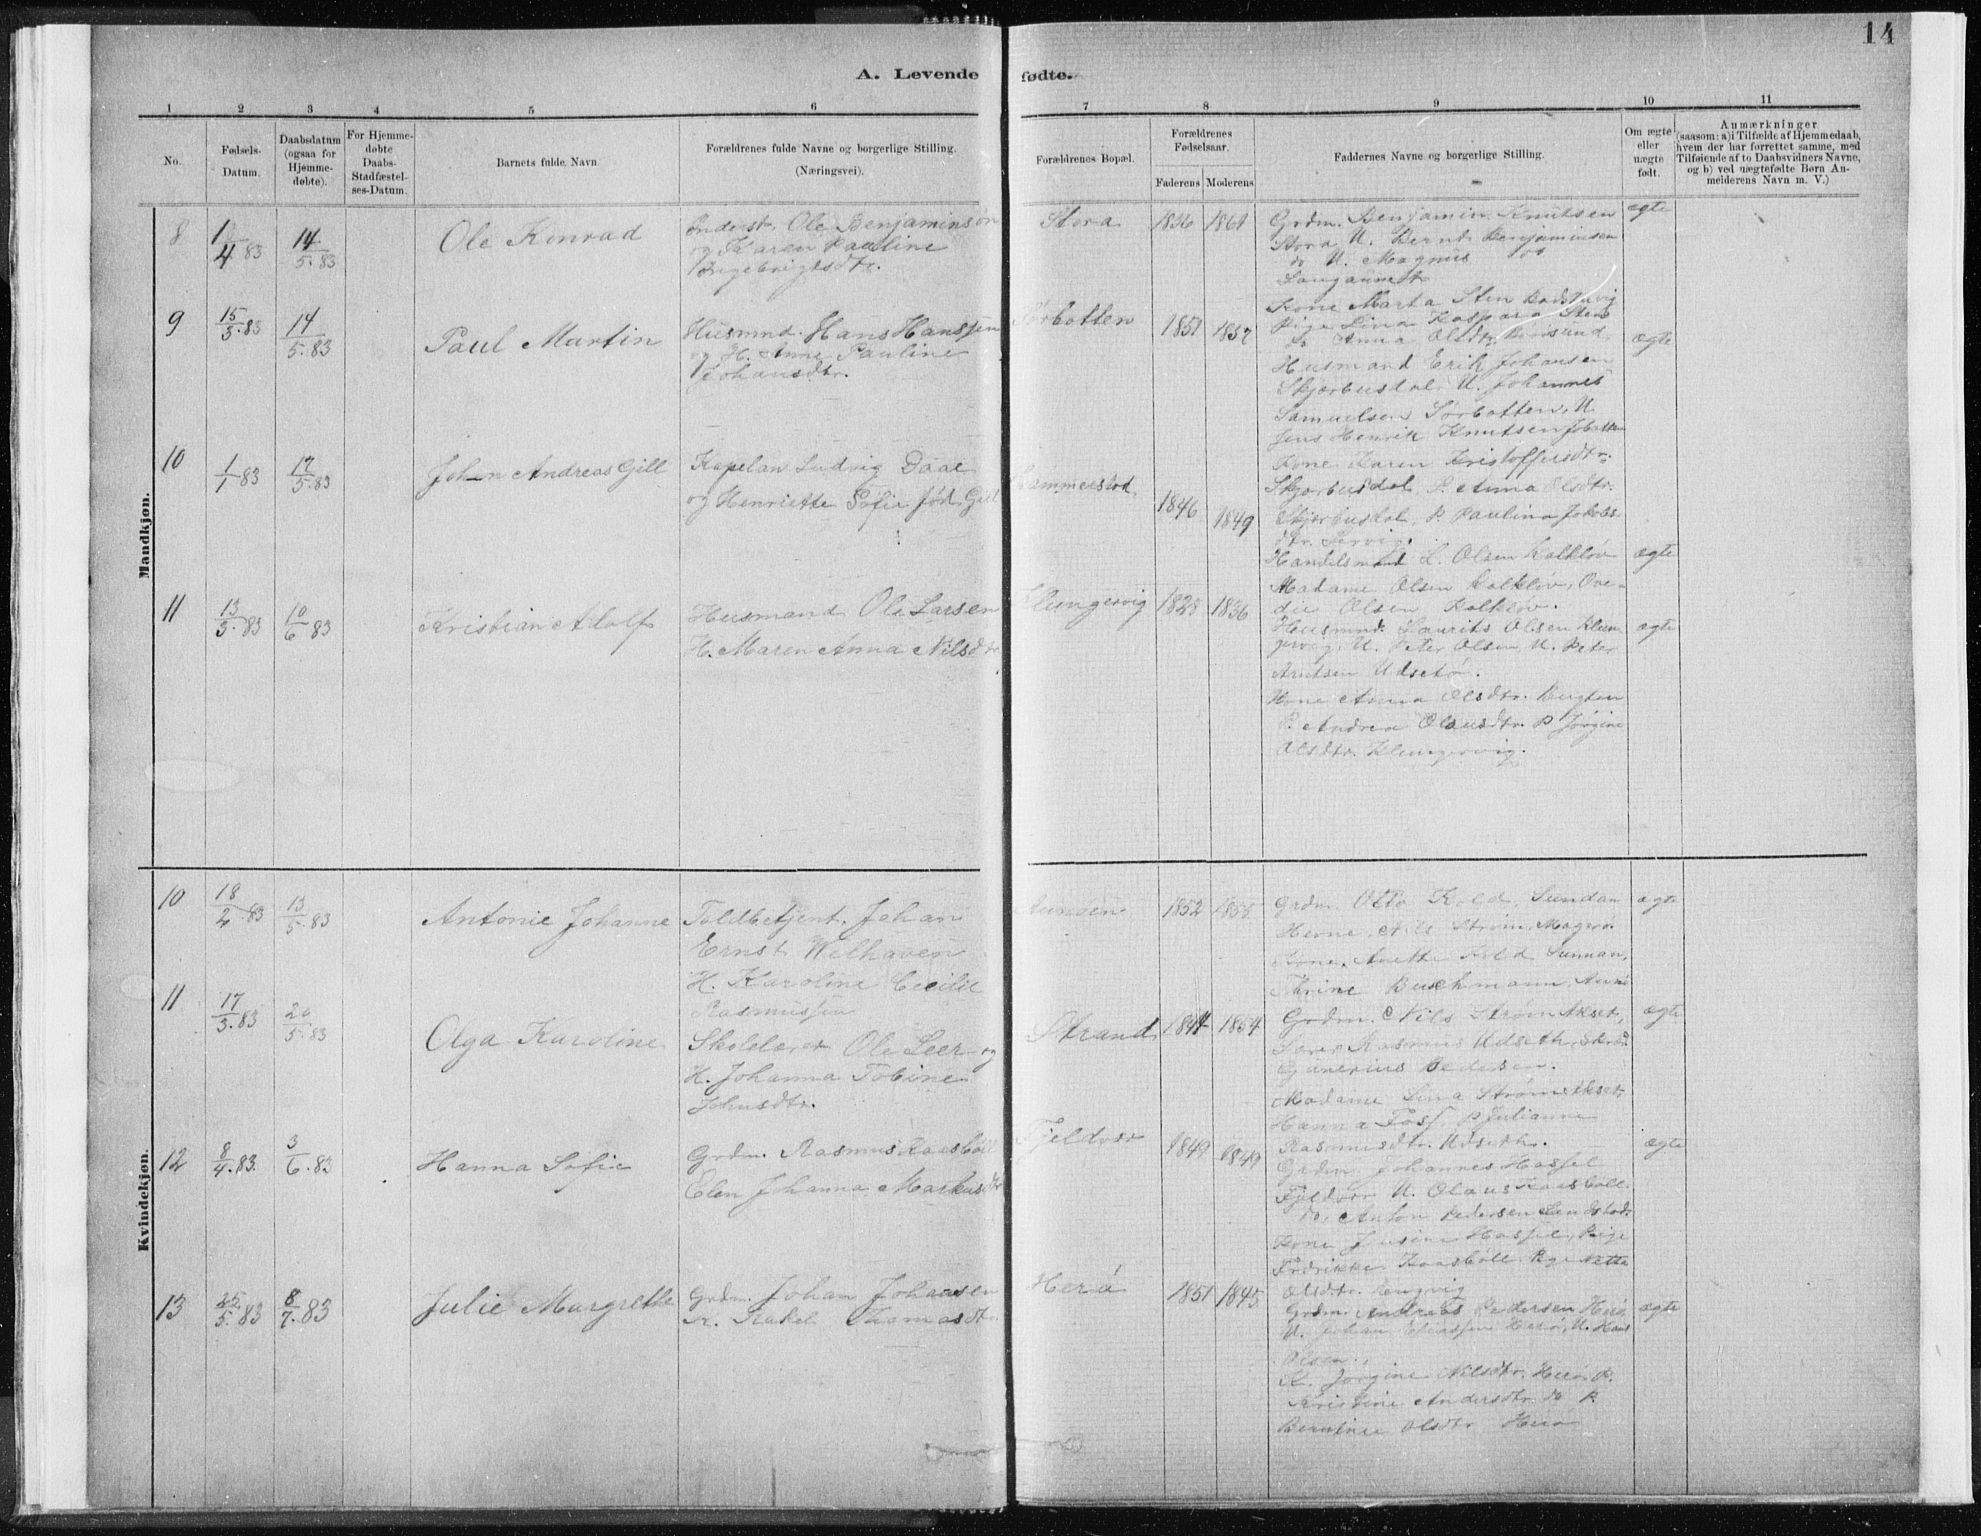 14
A. Levende fødte.
1 2 3 4 5 6 7 8 9 10 11
No.
Fødsels-Datum.
Daabsdatum (ogsaa for Hjemme-døbte).
For Hjemme-døbte Daabs-Stadfæstel-ses-Datum.
Barnets fulde Navn.
Forældrenes fulde Navne og borgerlige Stilling. (Næringsvei).
Forældrenes Bopæl.
Forældrenes Fødselsaar.
Faderens Moderens
Faddernes Navne og borgerlige Stilling.
Om ægte eller uægte født.
Anmærkninger
(saasom: a) i Tilfælde af Hjemmedaab,
hvem der har forrettet samme, med
Tilføiende af to Daabsvidners Navne,
og b) ved uægtefødte Børn An-
melderens Navn m. V.)
Mandkjøn.
8 1/4 83 14/5 83 Ole Konrad
Ole Benjaminsøn
og Karen Pauline
Stora 1836 1861
Grdm. Benjamin Knutsen
Stora U. Bernt Benjaminsen
do U. Magnus
ægte
9 15/3 83 14/5 83 Paul Martin
Husmnd. Hans Hanssen
og H. Anne Pauline
Johansdtr.
Sørbotten 1851 1857
Kone Marta Sten
Pige Lina Kaspara Sten
do Anna Olsdtr.
Husmand Erik Johansen
Skjærbusdal, U. Johannes
Samuelsen Sørbotten, U.
Jens Henrik Knutsen
Kone Karen Kristoffersdtr.
Skjærbusdal, P. Anna Olsdtr.
Skjærbusdal, P. Paulina Jakobs
dtr.
ægte
10 1/1 83 17/5 83 Johan Andreas Gill
Kapelan Ludvig Daae
og Henriette Sofie fød. Gill
Hammerstad 1846 1849
Handelsmand L. Olsen Kalkløv
Madame Olsen Kalkløv, Ove-
die Olsen Kalkløv.
ægte
11 13/3 83 10/6 83 Kristian Adolf
Husmand Ole Larsen
H. Maren Anna Nilsdtr
Klungervig 1828 1836
Husmnd. Laurits Olsen Klun
gervig, U. Peter Olsen, U. Peter
Arntsen Udsetø.
Kone Anna Olsdtr.
P. Andrea Olausdtr. P Jørgine
Olsdtr. Klungervig.
ægte
Kvindekjøn.
10 18/2 83 13/5 83 Antonie Johanne
Toldbetjent. Johan
Ernst Welhaven
H. Karoline Cecilie
Rasmussen
1852 1858
Grdm. Otto Kold, Sundan
Nils Strøm, Magerø
Kone Anette Kold Sunnan,
Thrine Buschmann
ægte
11 17/3 83 20/5 83 Olga Karoline
Skolelærer Ole Leer og
H. Johanna Tobine
Johnsdtr.
Strand 1844 1854
Grdm. Nils Strøm Akset,
Lærer Rasmus Udseth,
Gunerius Pedersen.
Madame Lina Strøm Akset,
Hanna Foss, P Julianne
Rasmusdtr. Udseth.
ægte
12 8/4 83 3/6 83 Hanna Sofie
Grdm. Rasmus Kaasbøll
Elen Johanna Markusdtr
Fjeldvær 1849 1849
Grdm. Johannes Hassel
Fjeldvær U. Olaus Kaasbøll
do, Anton Pedersen
Kone Hassel, Pige
Fredrikke Kaasbøll Pige Netta
Olsdtr.
ægte
13 25/5 83 8/7 83 Julie Margrethe
Grdm. Johan Johansen
K. Rakel Thomasdtr.
Herø 1851 1845
Grdm. Andreas Pedersen Herø
U. Johan Eliassen Herø, U. Hans
Olsen.
K. Jørgine Nilsdtr. Herø P.
Kristine Andersdtr. do P.
Berntine Olsdtr Herø
ægte